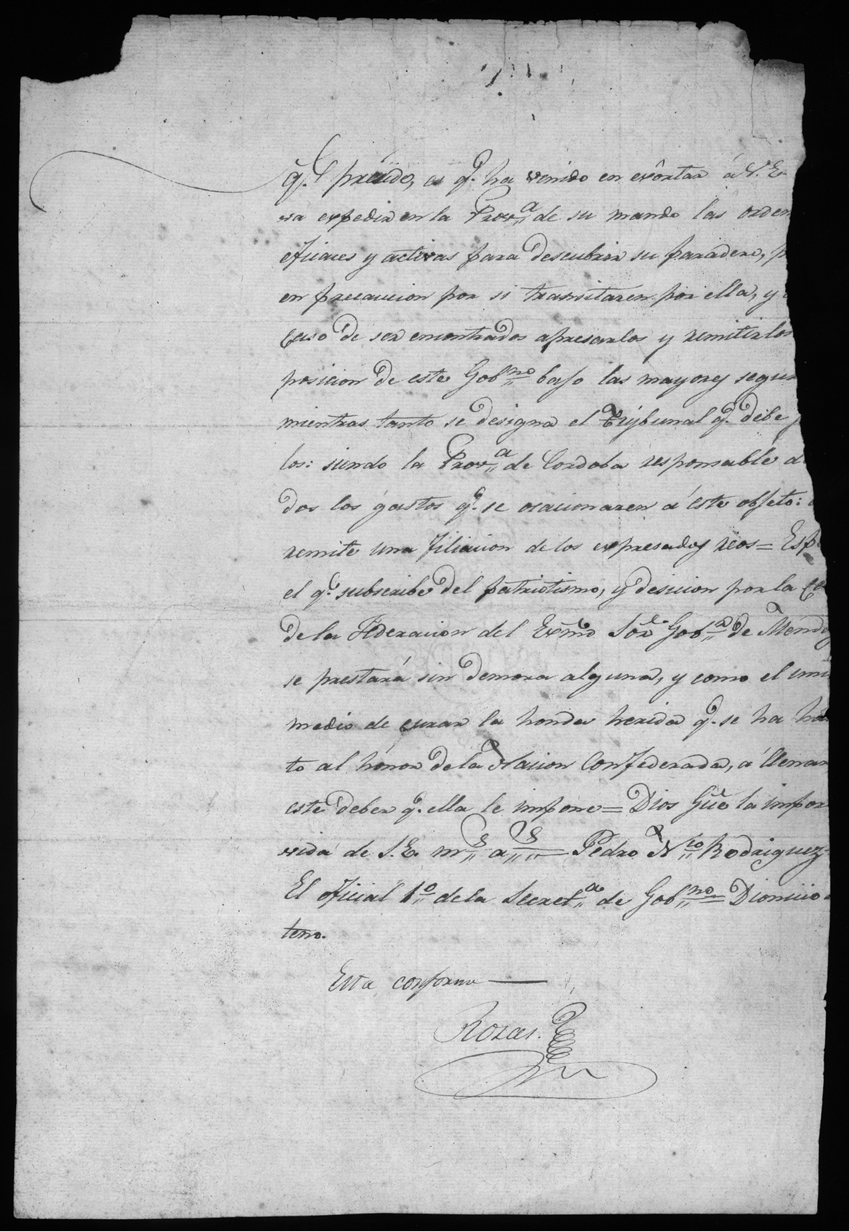 q.e preside, es q.e ha venido en exôrtar á V. E.
va expedir en la Prov.a de su mando las orden
eficaces y activas para descubrir su paradero,
en precaucion por si transitaren por ella, y
caso de ser encontrados apresarlos y remitirlos
posicion de este Gob.no bajo las mayores segur
mientras tanto se designa el Trybunal q.e debe
los: siendo la Prov.a de Cordoba responsable d
dos los gastos q.e se ocacionaren á este objeto:
remite una filiacion de los expresados reos = Esp
el q.e subscribe del patriotismo, y desicion por la
de la Federacion del Exmo Sor. Gob.or de Mendo
se prestará sin demora alguna, y como el uni
medio de curar la honda herida q.e se ha
to al hónor de la Nacion Confederada, á llenar
este deber q.e ella le impone = Dios Gue la impor
vida de S. E. m.s a.s = Pedro N.to Rodriguez
El oficial 1.o de la Secret.a de Gob.no = Dionicio
tero.
Está conforme —
Rozas.